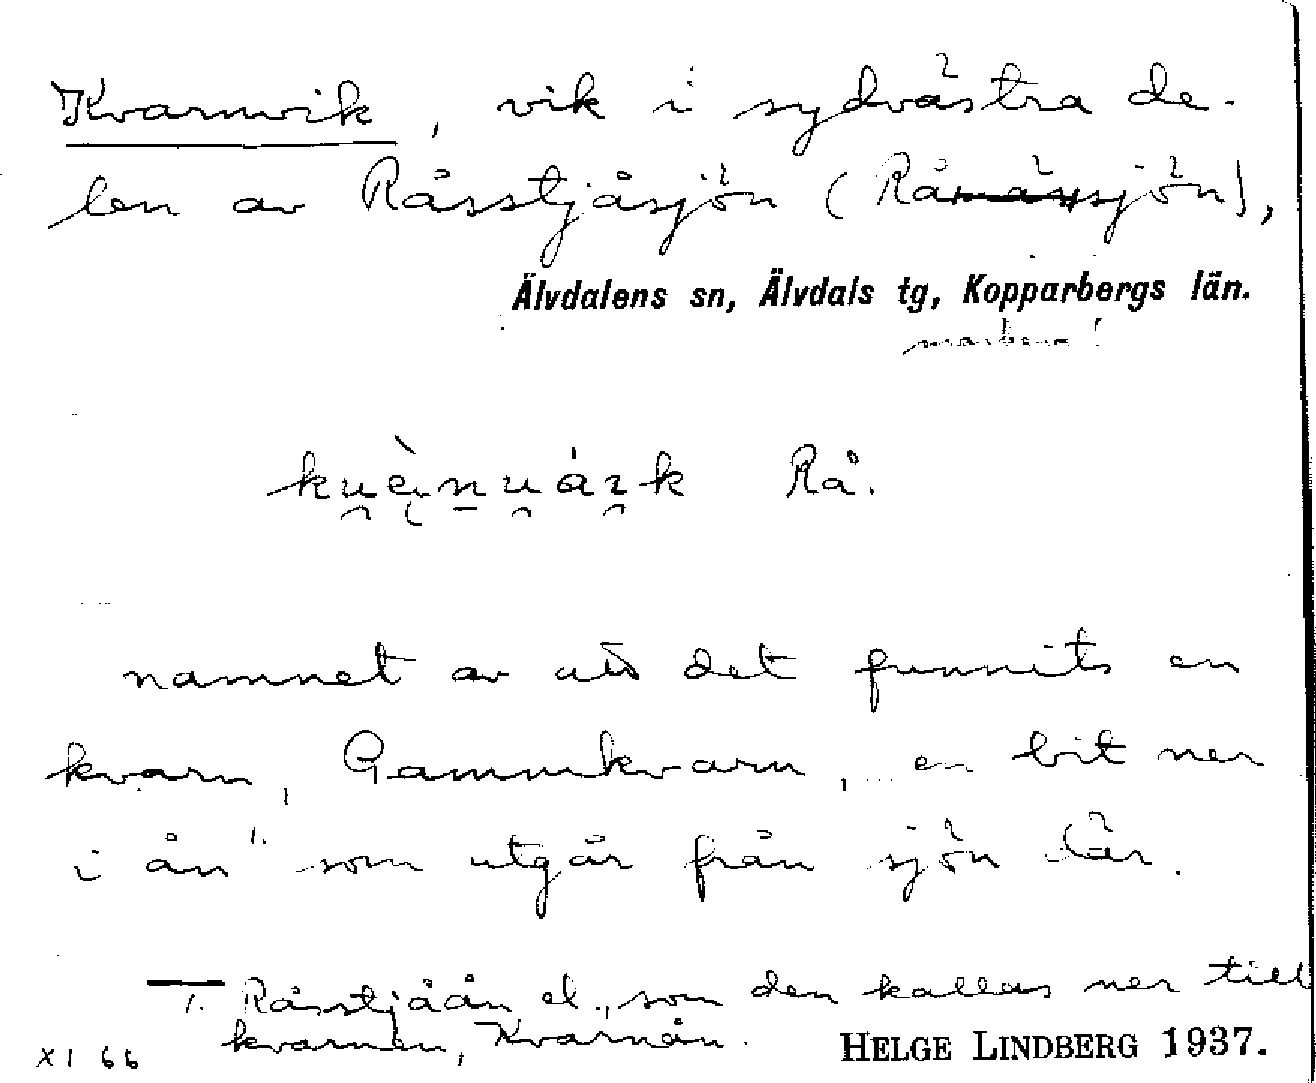 Kvarnvik, vik i sydvästra de-
len av Råsstjåsjön (Råsjön),
Älvdalens sn, Älvdals tg, Kopparbergs län.
marken!
Rå.
namnet av att det funnits en
kvarn, Gammkvarn, en bit ner
i ån 1. som utgår från sjön där.
1. Råsstjåån el., som den kallas ner till
kvarnen, Kvarnån.
XI 66 HELGE LINDBERG 1937.